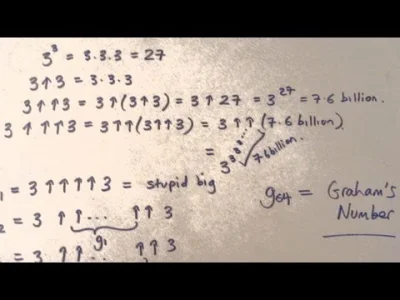 3³ = 3·3·3 = 27
3↑3 = 3·3·3
3↑↑3 = 3↑(3↑3) = 3↑27 = 3²⁷ = 7.6 billion.
3↑↑↑3 = 3↑↑(3↑↑3) = 3↑↑(7.6 billion)
= 3³³³··· 7.6 billion.
1 = 3↑↑↑↑3 = stupid big
g₆₄ = Graham's Number
2 = 3↑↑... ↑↑3
g₁
= 3↑↑... ↑↑3